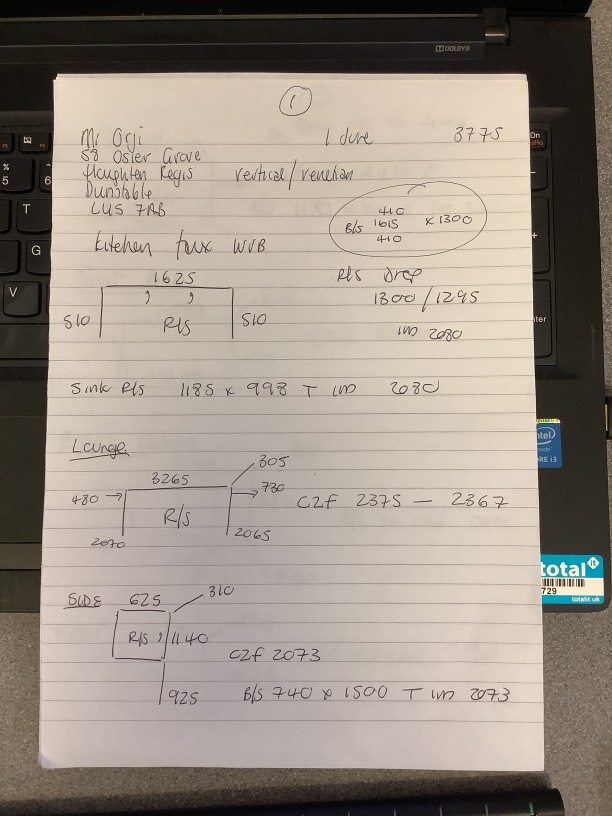 1
Mr Orji 1 June 3775
58 Osler Grove
Haughten Regis vertical/venetian
Dunstable
LU5 7AB
410
B/s 1615 x 1300
410
Kitchen faux WVB
1625
R/s Drop
1300/1295
510 R/s 510
im 2080
Sink R/s 1185 x 998 T im 2080
Lounge
305
3265
480 730
R/s C2f 2375 - 2367
2070 2065
SIDE 625 310
R/s 1140
C2f 2073
925 B/s 740 x 1500 T im 2073
DOLBY
%
5
6
T
G
V
intel
inside
CORE i3
total it
729
totalit uk